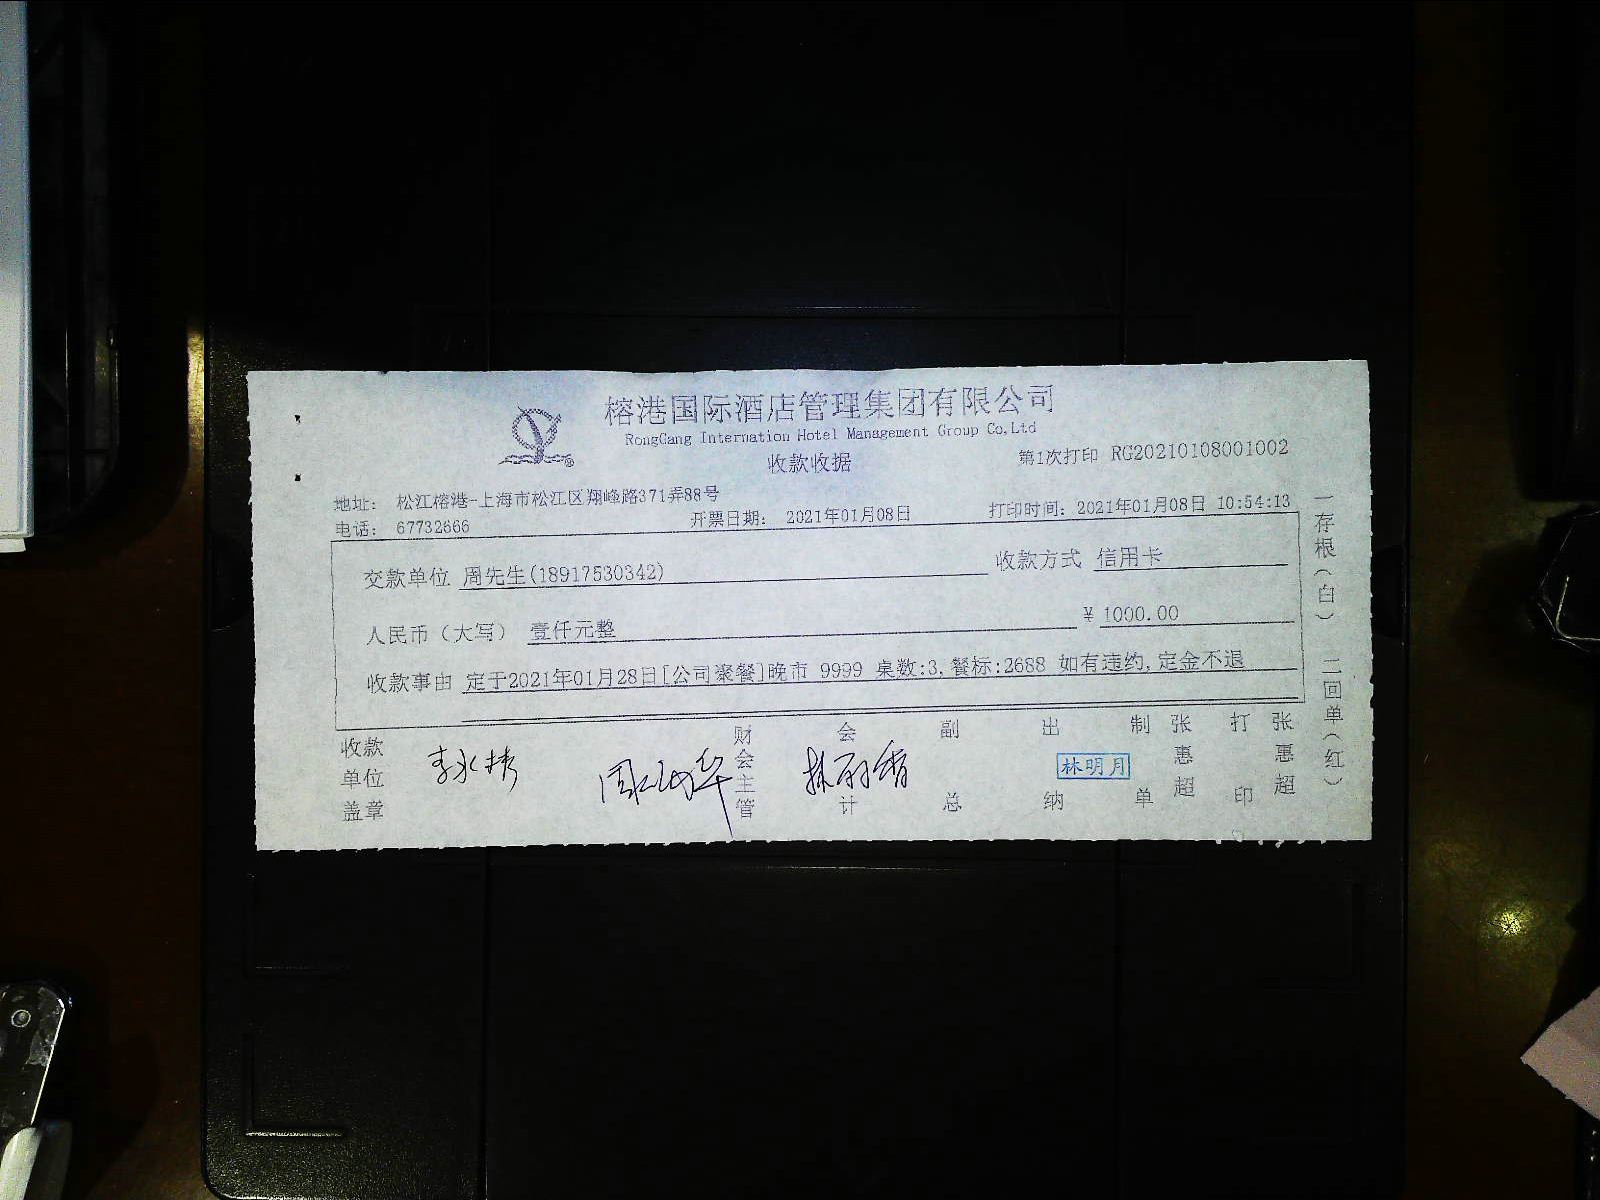 榕港国际酒店管理集团有限公司
RongGang Internation Hotel Management Group Co,Ltd
收款收据
第1次打印 RG20210108001002
地址： 松江榕港-上海市松江区翔峰路371弄88号
电话： 67732666 开票日期： 2021年01月08日 打印时间：2021年01月08日 10:54:13
交款单位 周先生(18917530342) 收款方式 信用卡
人民币（大写） 壹仟元整 ¥ 1000.00
收款事由 定于2021年01月28日[公司聚餐]晚市 9999 桌数:3,餐标:2688 如有违约,定金不退
收款单位盖章
财会主管
会计
副总
出纳 林明月
制单 张惠超
打印 张惠超
一存根（白） 二回单（红）